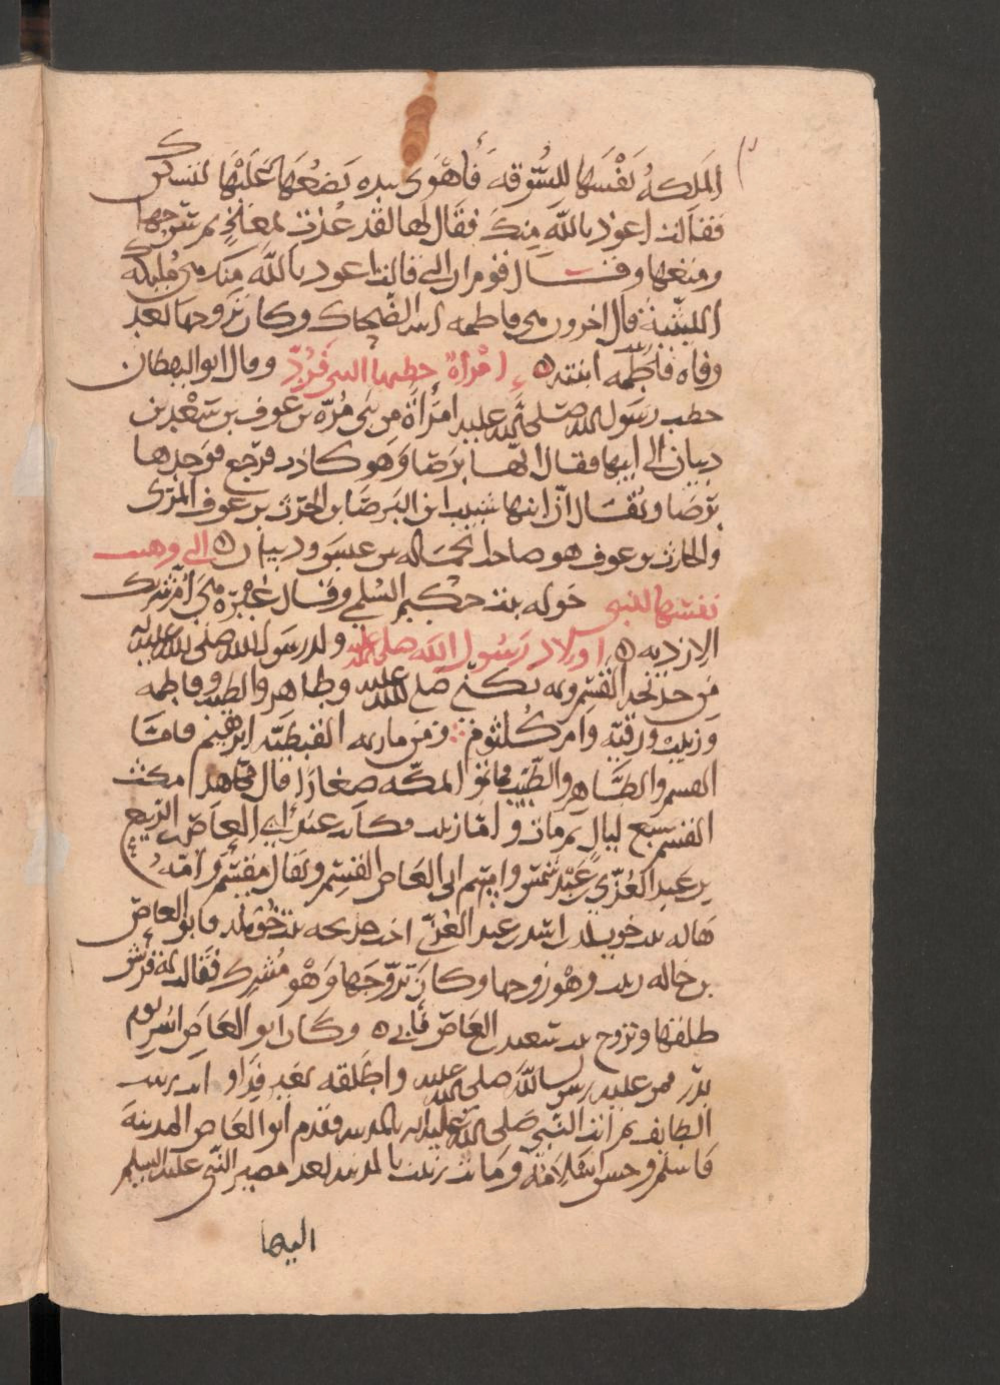 الملكة نَفْسَها للسُّوقه فأهْوَى بيده يَضعُهَا عَلَيْهَا لتسكن
فقالت اعوذ بالله مِنك فقال لها لقد عُذت بمعاذٍ ثم سرحها
ومتعها وقال قوم ان التي قالت اعوذ بالله منك هي مليكة
الليثية قال اخرون هي فاطمه ابنه الضحاك وكان تزوجها بعد
وفاه فاطمه ابنته ه امْرأة خطبها النبي فَرُدّ وقال ابو اليقظان
خطب رسول الله صلى الله عليه امرأة من بَني مُرّه بن عوف بن سَعْد بن
ذبيان الى ابيها فقال ان بها برَصًا وهو كاذب فرجع فوجدها
برصا ويُقال ان ابنها شبيب ابن البَرصَا بن الحرث بن عوف المرّي
والحارث بن عوف هو صاحب الحماله بين عبس وذبيان ه التي وهبت
نفسَها للنبي خوله بنت حكيم السُّلمي وقال غيره هي أم شريك
الازديه ه اولاد رَسُول الله صلى الله عليه ولد رسول الله صلى الله عليه
من خديجة القسم وبه يكنى صلى الله عليه وطاهر والطيب وفاطمه
وزينب ورقيّه وام كُلثوم ومن ماريه القبطيّه ابرهيم فامّا
القسم والطاهر والطيّب فماتوا بمكّه صغارًا قال مجاهد مكث
القسم سبع ليالٍ ثم مات وامّا زينب فكانت عند ابي العاص بن الربيع
بن عبد العُزّى بن عَبْد شمس واسم ابى العاص القسِم ويقال مقسم وامّه
هاله بنت خويلد بن اسَد بن عبد العزّى اخت خديجه بنت خويلد فابو العاص
بن خاله زينب وهْو زوجها وكان تزوّجَها وهْو مُشرِك فقالت له قريش
طلقها وتزوج بنت سعيد بن العَاص فأبى ه وكان ابو العَاصِ اسر يوم
بدر فمن عليه رسول الله صلى الله عليه واطلقه بغير فِدا و اتت زينب
الطايف ثم اتت النبي صَلى الله عليه بالمدينه فقدم ابو العاص المدينة
فاسلم وحسن اسْلامُه ومَاتت زينب بالمدينه بعد مصير النّبى عليه السلم
اليها